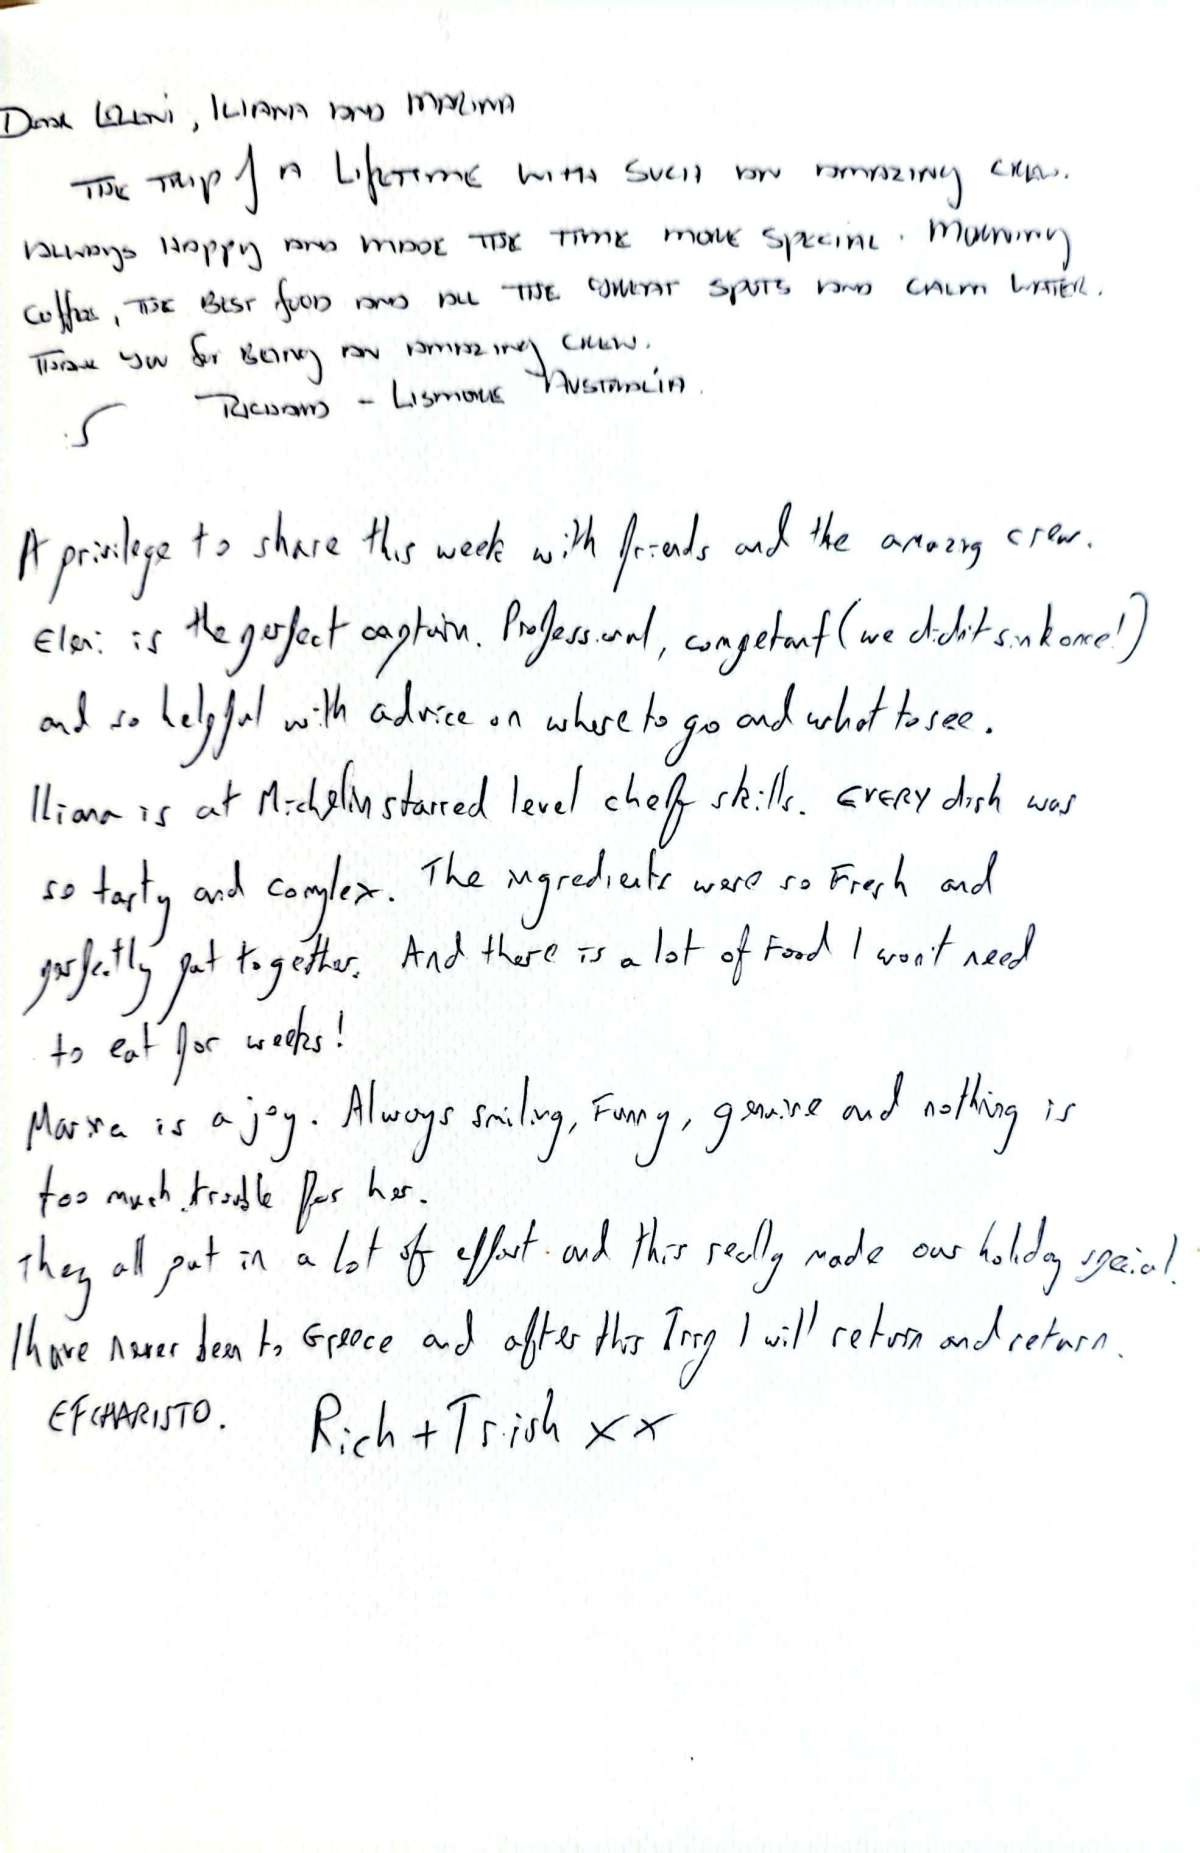 Dear Eleni, Iliana and Marina
The trip of a Lifetime with such an amazing crew.
Always Happy and made the time more special. Morning
Coffee, the Best food and all the great spots and calm water.
Thank you for Being an amazing crew.
Richard - Lismore Australia.
A privilege to share this week with friends and the amazing crew.
Eleni is the perfect captain. Professional, competant (we didn't sink once!)
and so helpful with advice on where to go and what to see.
Iliana is at Michelin starred level cheff skills. EVERY dish was
so tasty and complex. The ingredients were so Fresh and
perfectly put together. And there is a lot of Food I won't need
to eat for weeks!
Marina is a joy. Always smiling, Funny, genuine and nothing is
too much trouble for her.
They all put in a lot of effort and this really made our holiday special!
I have never been to Greece and after this Trip I will return and return.
EFCHARISTO. Rich + Trish x x